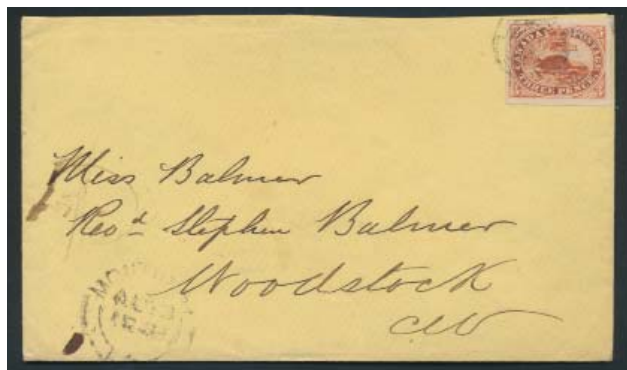 CANADA POSTAGE
THREE PENCE
Miss Balmer
Revd Stephen Balmer
Woodstock
CW
MONTREAL